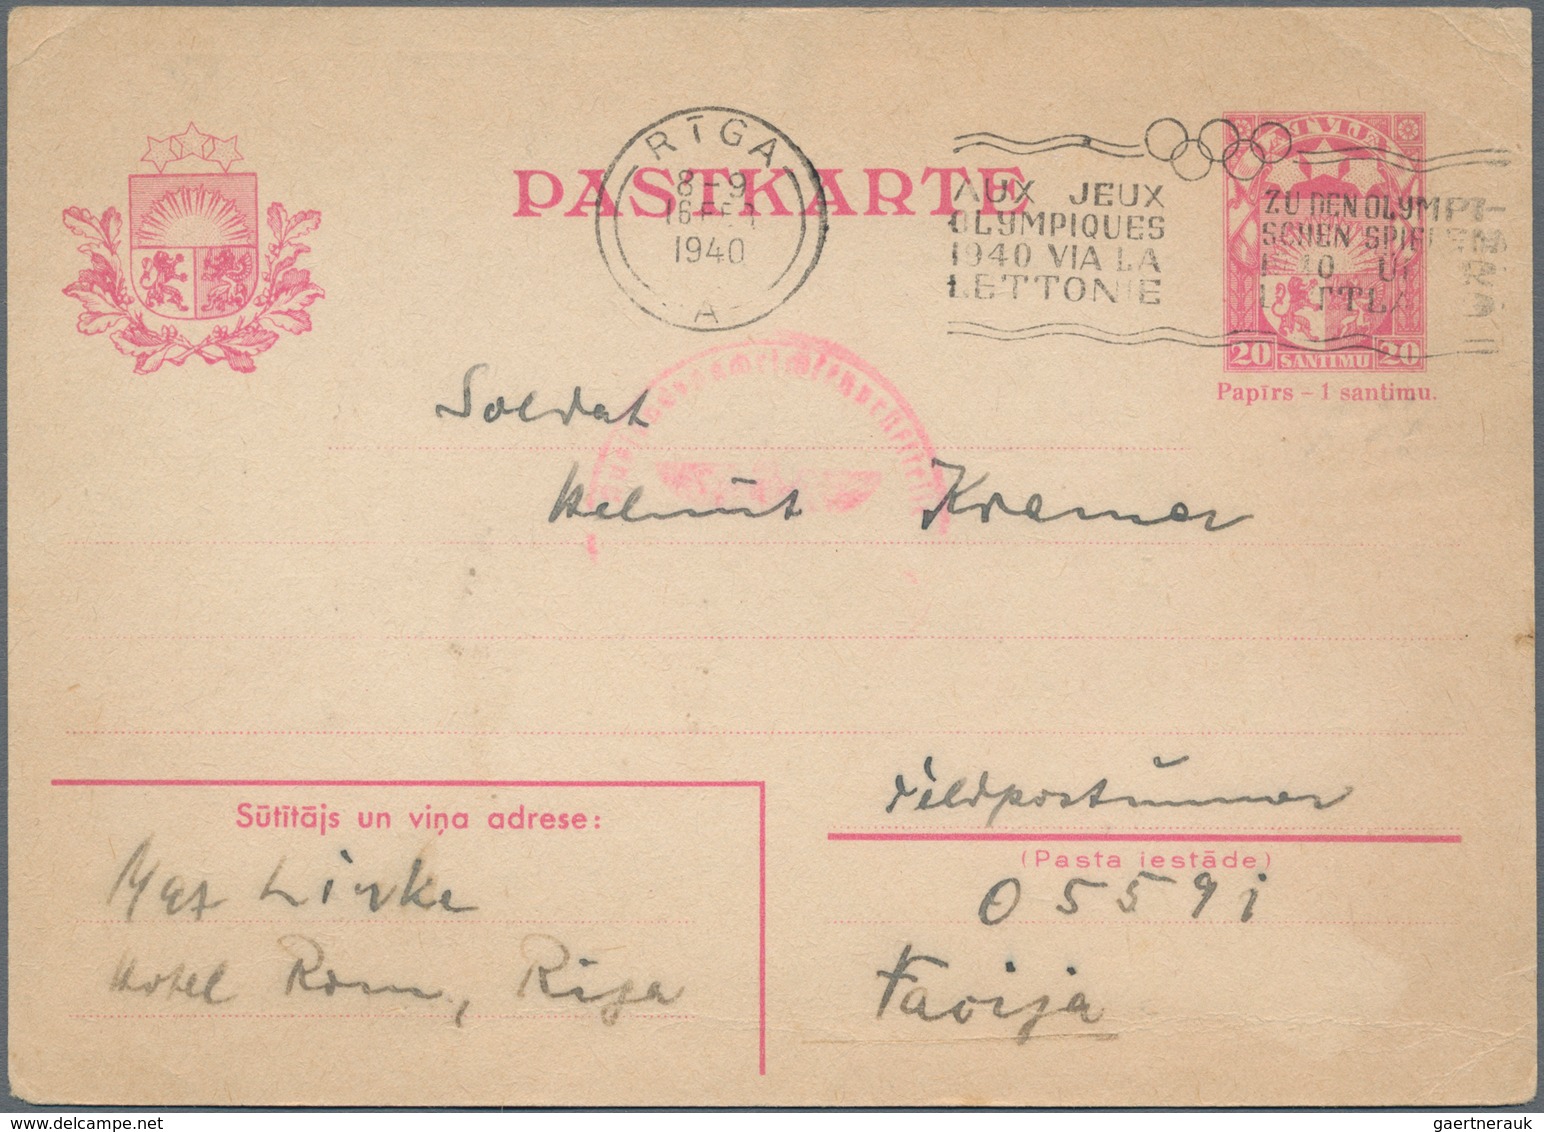 PASTKARTE
RĪGA
8-9
16 FEB
1940
A
AUX JEUX
OLYMPIQUES
1940 VIA LA
LETTONIE
ZU DEN OLYMPI-
SCHEN SPIELEN
LATVIJĒ
20 SANTIMU 20
Papīrs - 1 santimu.
Soldat
Helmut Kramer
Feldpostnummer
(Pasta iestāde)
05591
Sūtītājs un viņa adrese:
Max Linke
Hotel Rom, Rīga
gaertnerauk